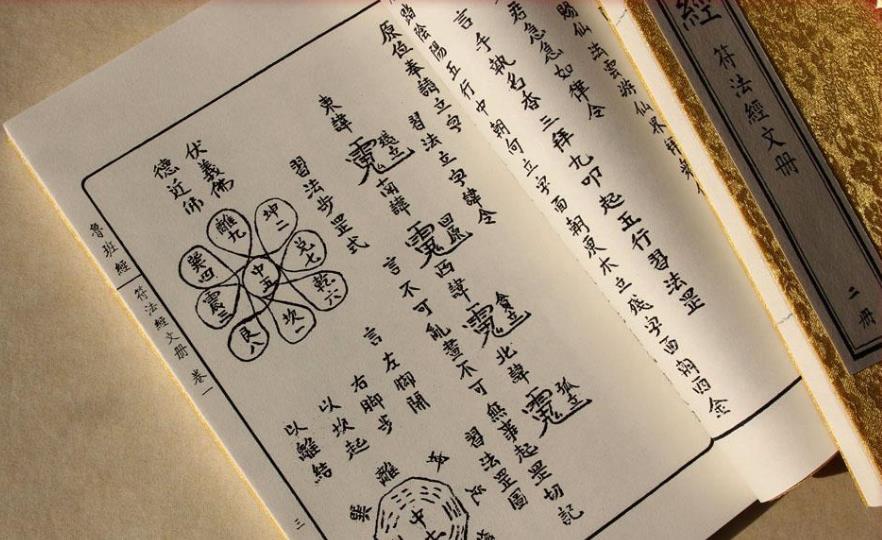 經
符法經文冊
二冊
賜仙法雲游仙界
君急急如律令
言手執名香三拜九叩起五行習法罡
陰陽五行中朝向立字面朝東木立殘字西朝西金
原位奉請立字
習法立字諱令
東諱
殘立
南諱
西諱
倉立
北諱
孤立
言不可亂畫不可
無事起罡切記
習法罡圖
習法步罡式
言左脚開
右脚步
以坎起
以離結
伏義佛
德近佛
離九
坤二
巽四
中五
兌七
震三
乾六
艮八
坎一
離
巽
中
魯班經
符法經文冊
卷一
三